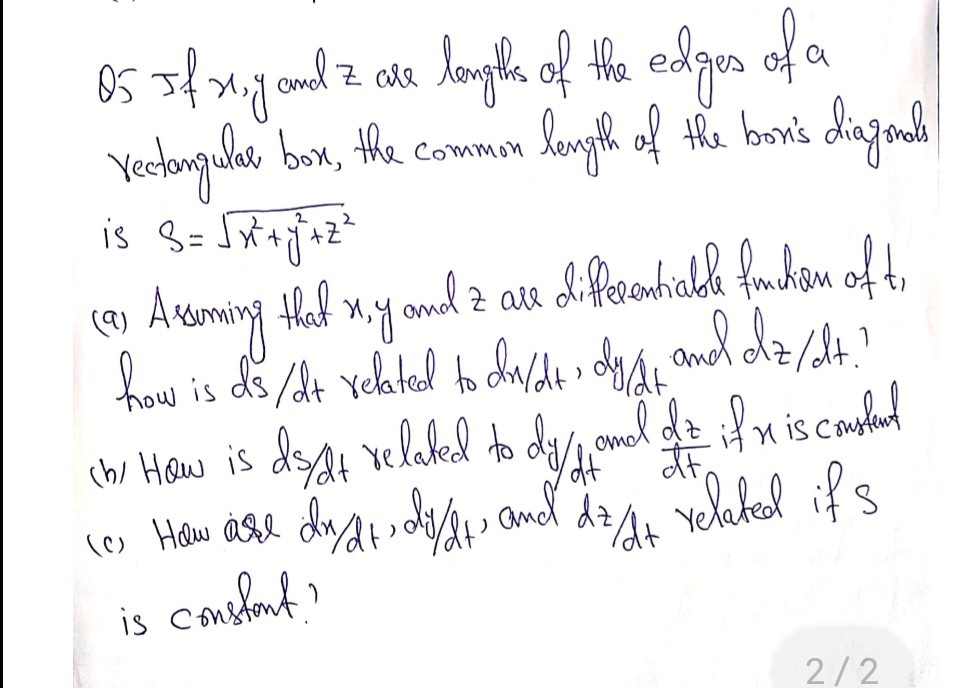 Q5 If x, y and z are lengths of the edges of a
rectangular box, the common length of the box's diagonals
is S = √x²+y²+z²
(a) Assuming that x, y and z are differentiable function of t,
how is ds/dt related to dx/dt, dy/dt and dz/dt?
(b) How is ds/dt related to dy/dt and dz/dt if x is constant
(c) How are dx/dt, dy/dt, and dz/dt related if s
is constant?
2/2